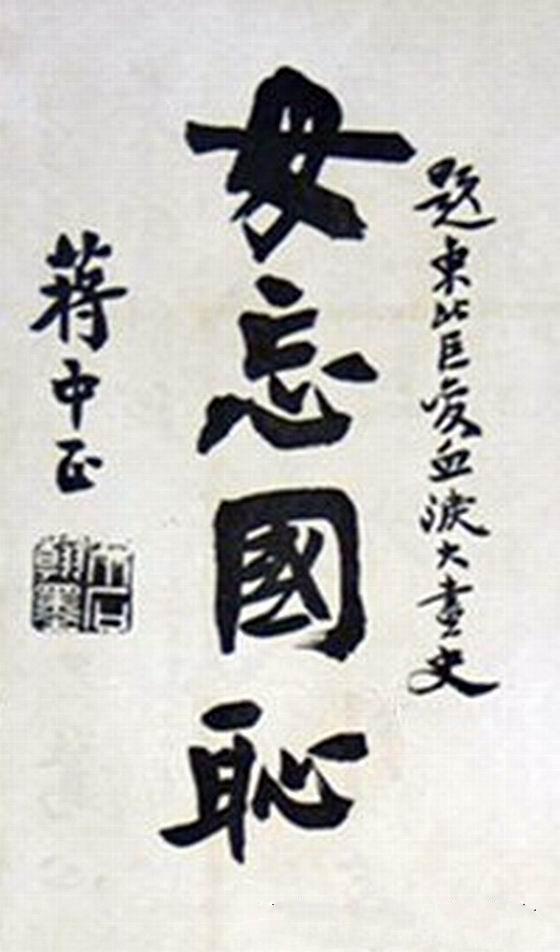 題東北巨變血淚大畫史
毋忘國恥
蔣中正